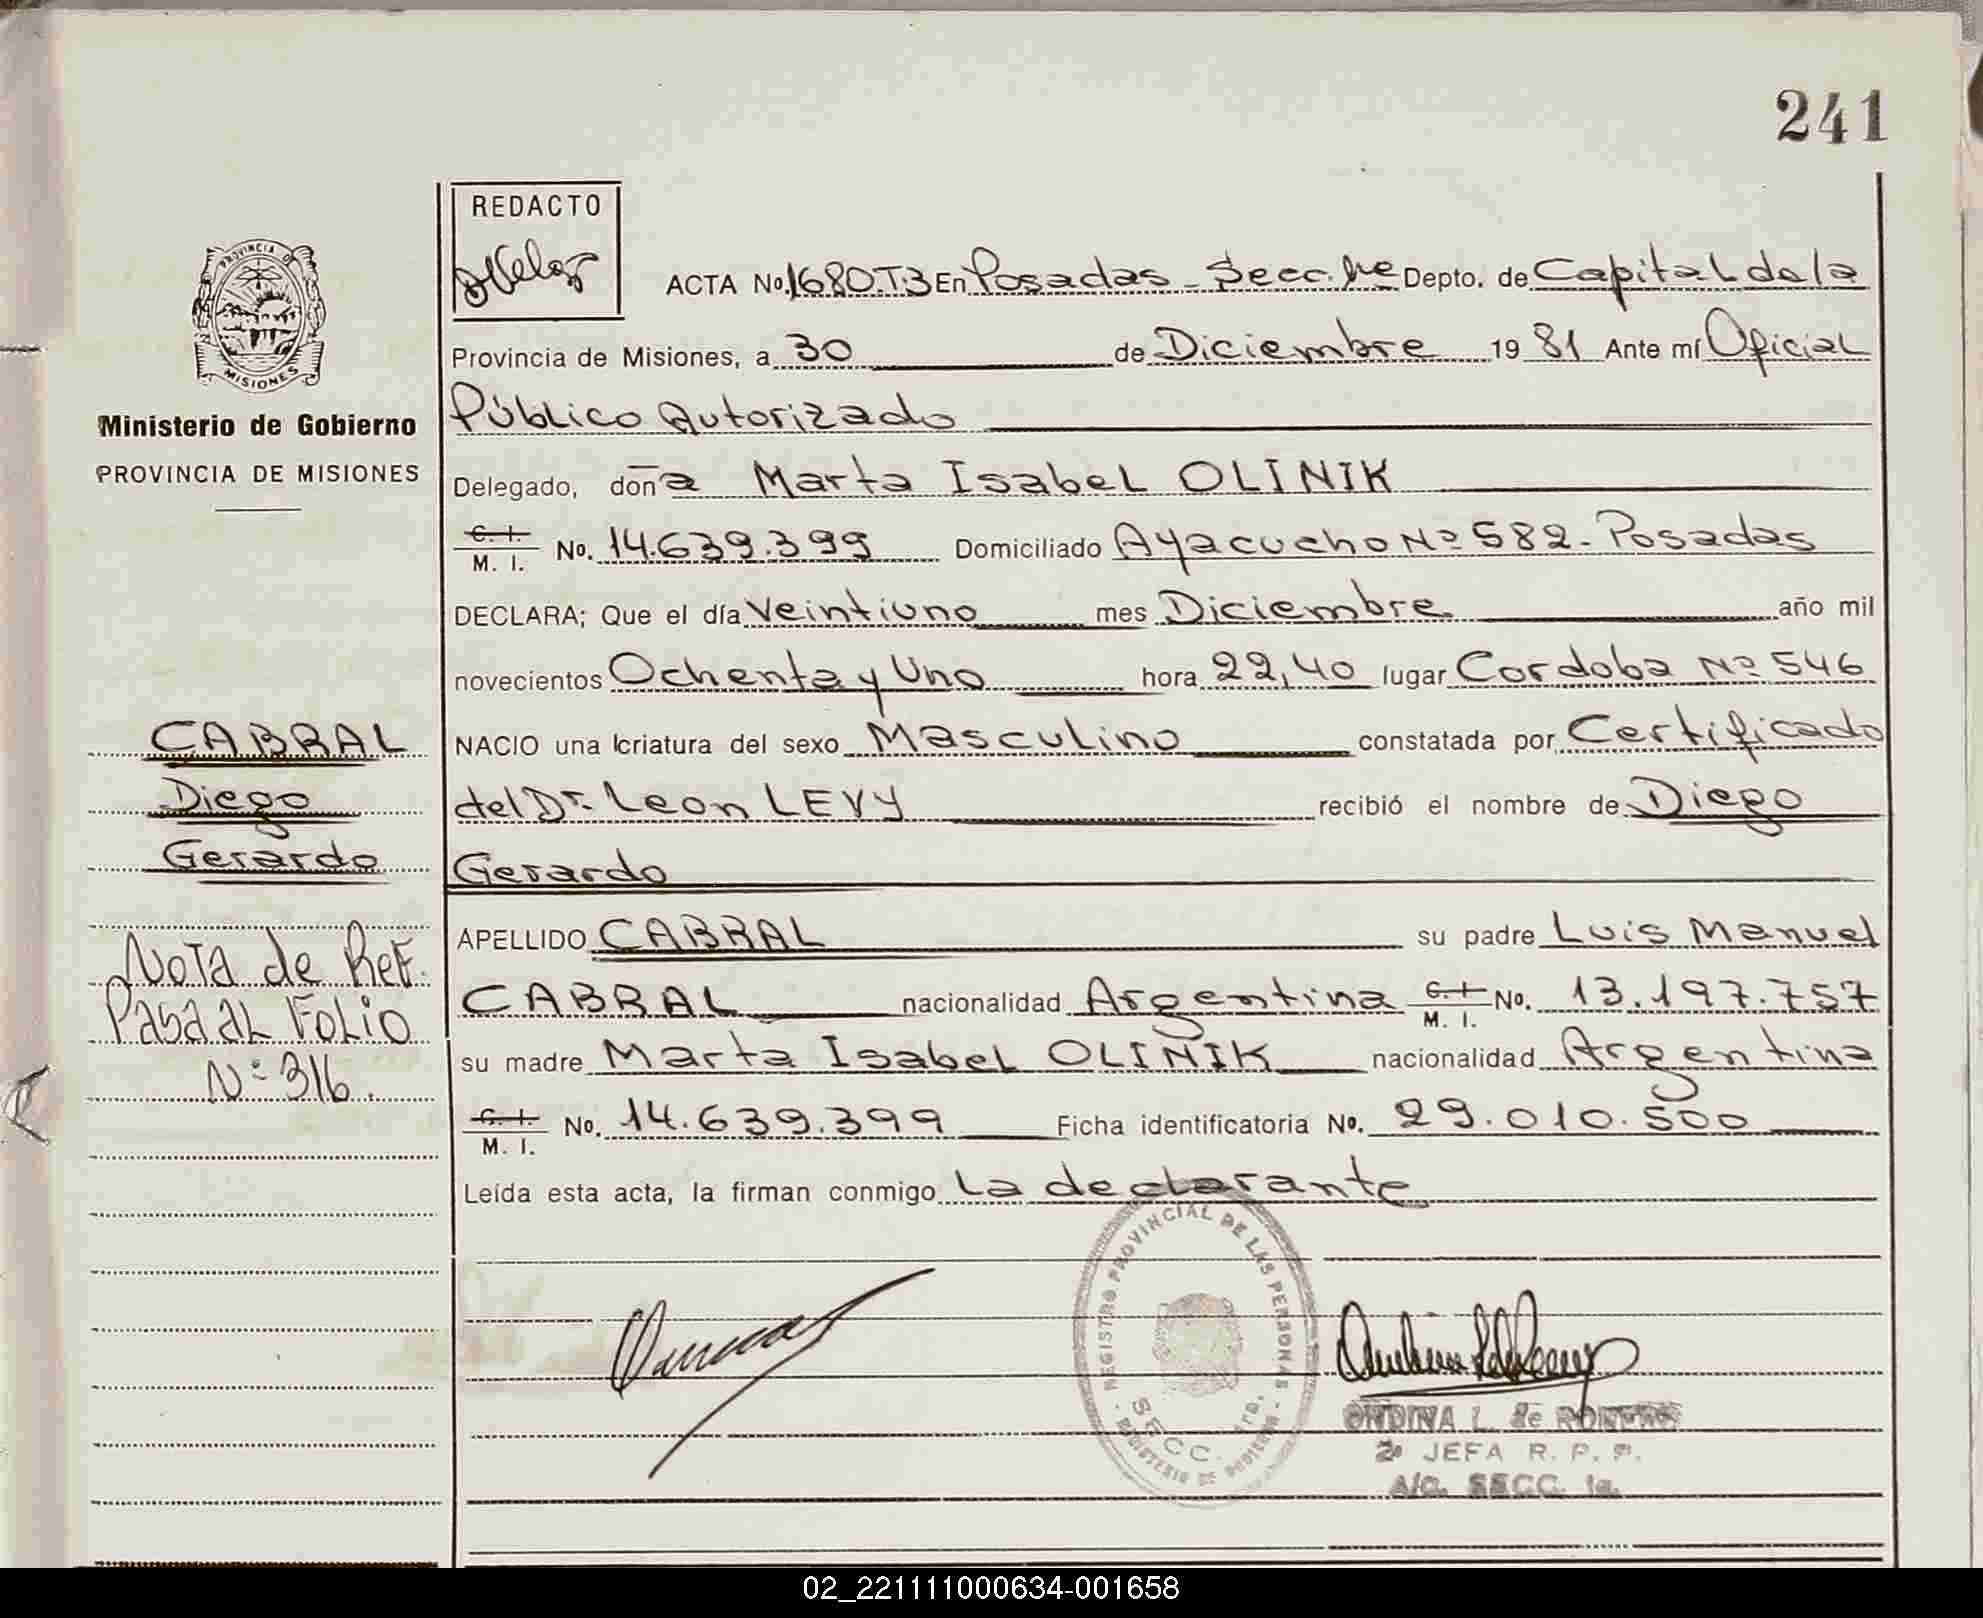 241
REDACTO
PROVINCIA DE
MISIONES
Ministerio de Gobierno
PROVINCIA DE MISIONES
CABRAL
Diego
Gerardo
Nota de Ref.
Pasa al Folio
Nº 316.
ACTA No. 1680.T.3 En Posadas - Secc. 1ra Depto. de Capital de la
Provincia de Misiones, a 30 de Diciembre 19 81 Ante mí Oficial
Público Autorizado
Delegado, doña Marta Isabel OLINIK
C. I.
M. I. No. 14.639.399 Domiciliado Ayacucho Nº 582 - Posadas
DECLARA; Que el día Veintiuno mes Diciembre año mil
novecientos Ochenta y Uno hora 22,40 lugar Cordoba Nº 546
NACIO una criatura del sexo Masculino constatada por Certificado
del Dr. Leon LEVY recibió el nombre de Diego
Gerardo
APELLIDO CABRAL su padre Luis Manuel
CABRAL nacionalidad Argentina C. I. M. I. No. 13.197.757
su madre Marta Isabel OLINIK nacionalidad Argentina
C. I.
M. I. No. 14.639.399 Ficha identificatoria No. 29.010.500
Leída esta acta, la firman conmigo La declarante
REGISTRO PROVINCIAL DE LAS PERSONAS
SECC. 1ra.
MINISTERIO DE GOBIERNO
ONDINA L. de ROMERO
2º JEFA R. P. P.
A/C. SECC. 1a.
02_221111000634-001658